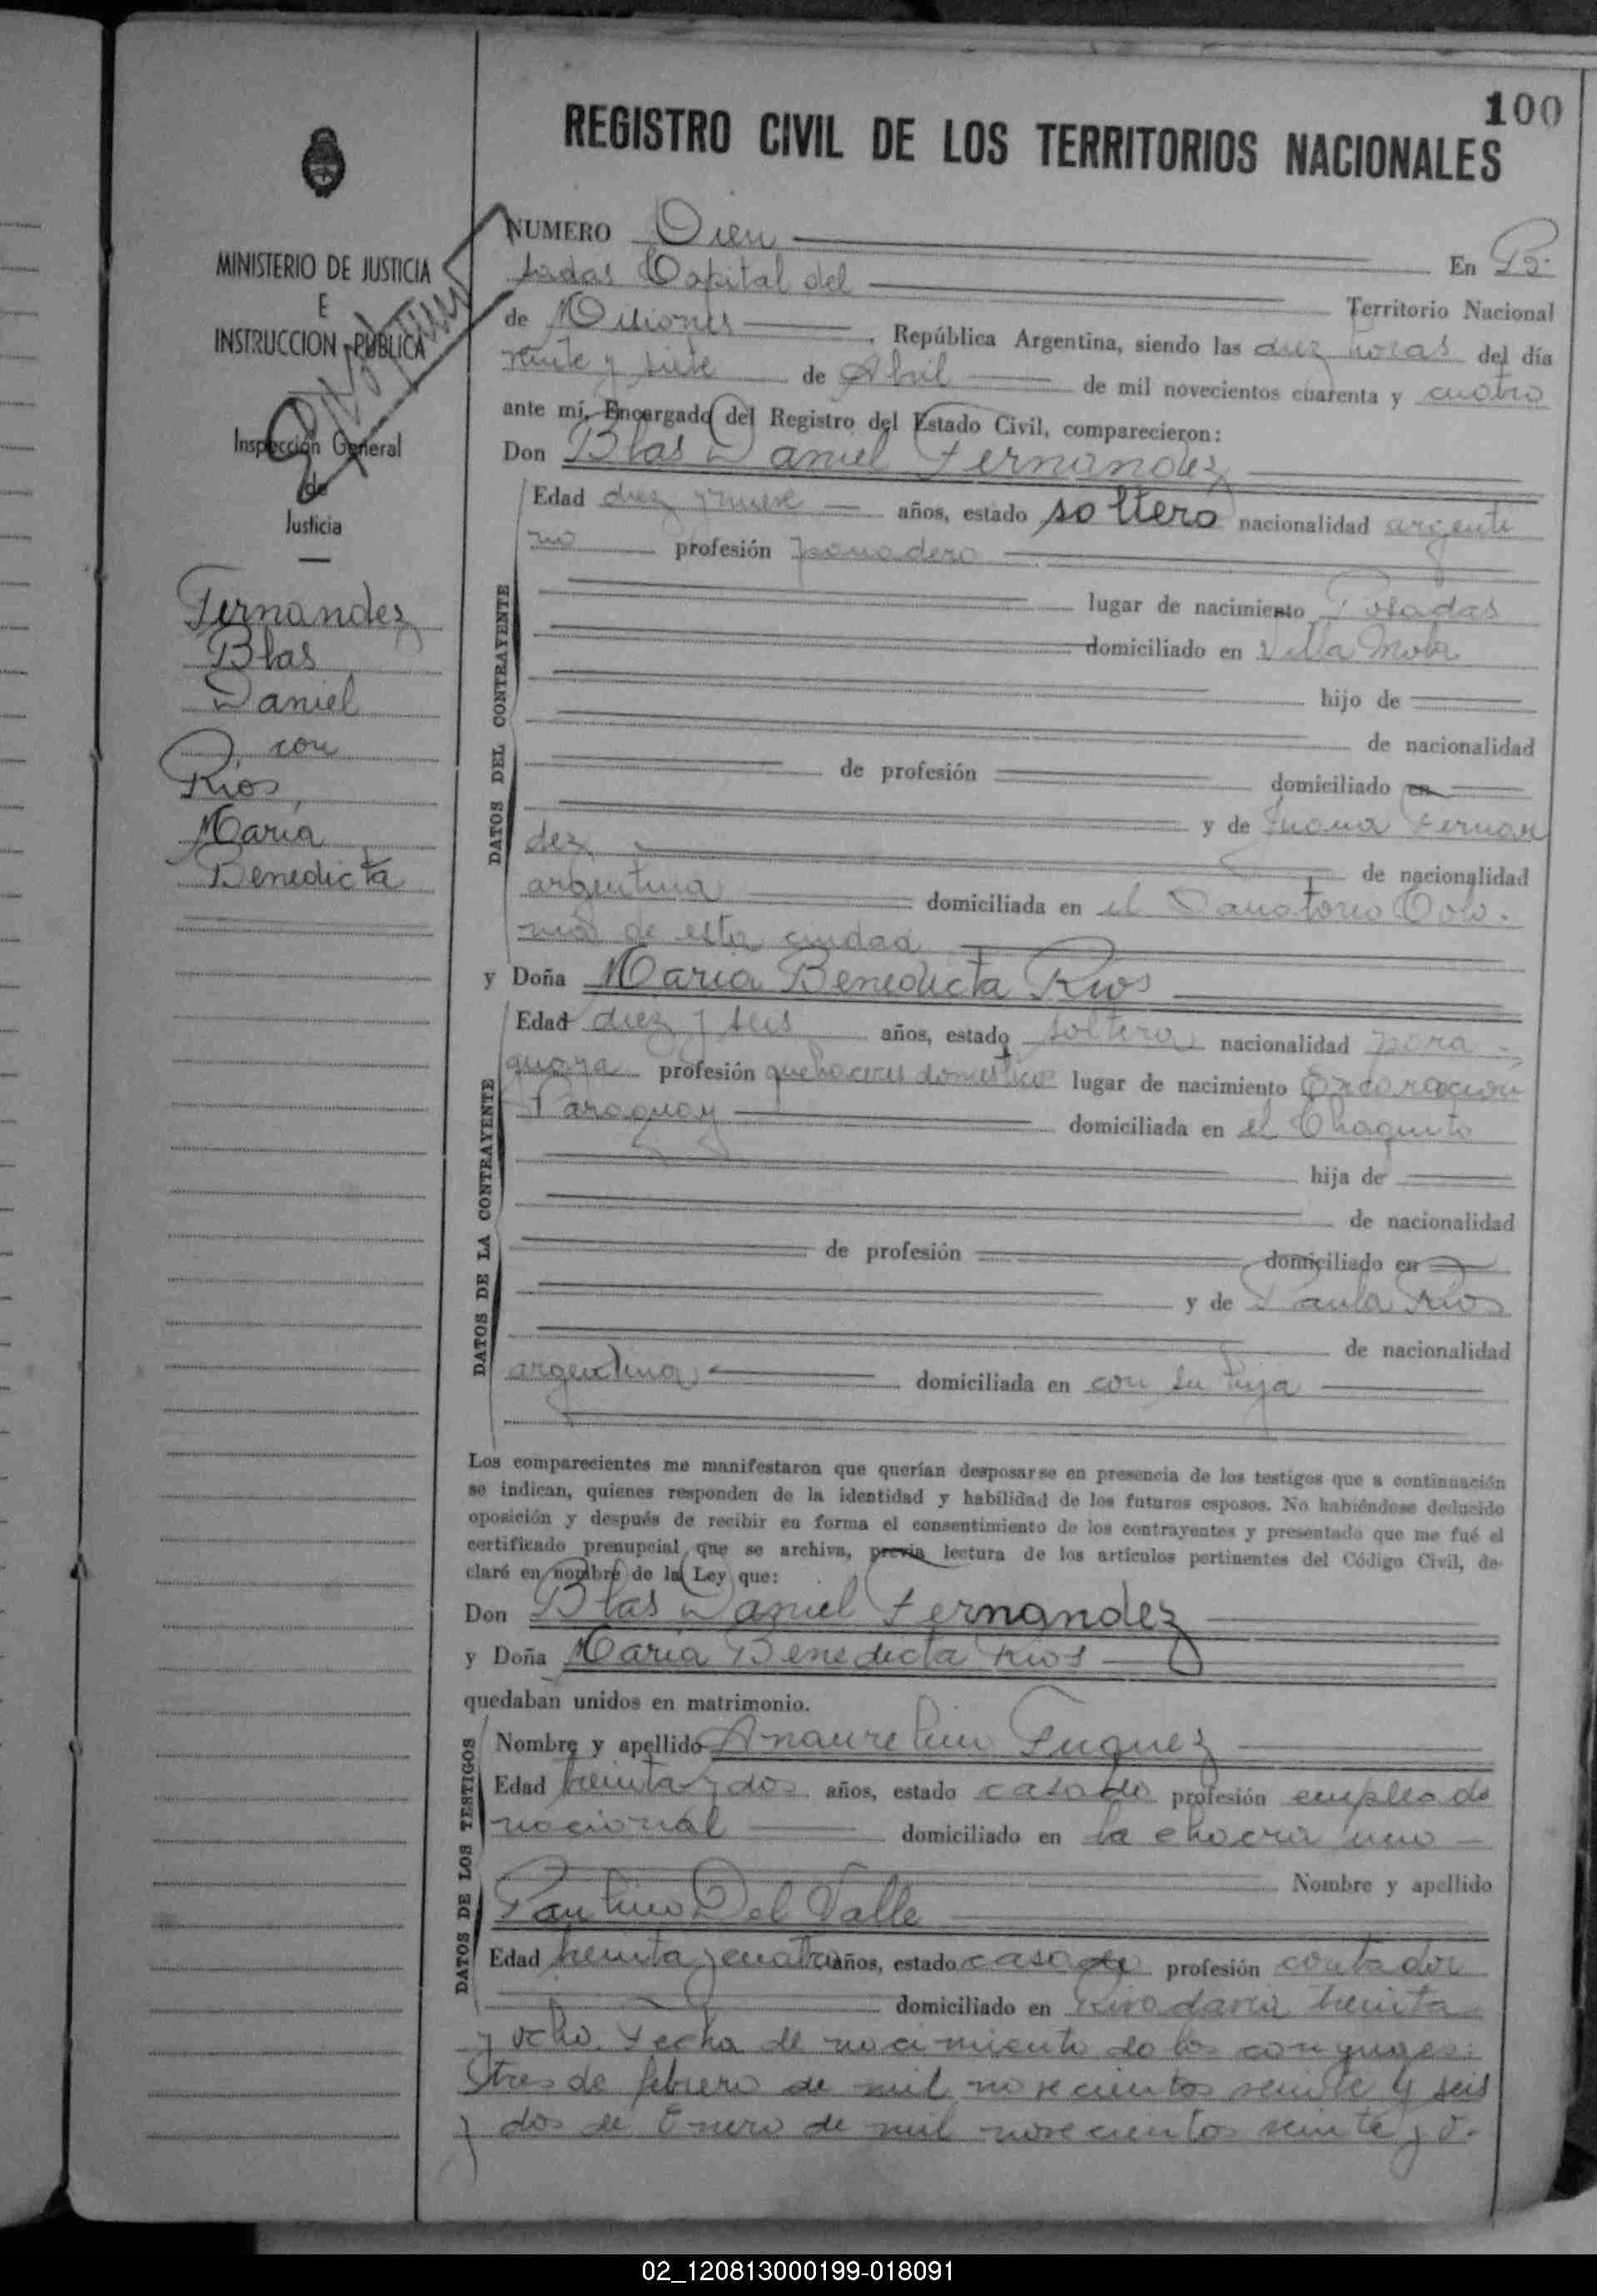 100
REGISTRO CIVIL DE LOS TERRITORIOS NACIONALES
MINISTERIO DE JUSTICIA
E
INSTRUCCION PUBLICA
Inspección General
de
Justicia
Fernandez
Blas
Daniel
con
Rios,
Maria
Benedicta
NUMERO Cien En Po-
sadas Capital del Territorio Nacional
de Misiones, República Argentina, siendo las diez horas del día
veinte y siete de Abril de mil novecientos cuarenta y cuatro
ante mí, Encargado del Registro del Estado Civil, comparecieron:
Don Blas Daniel Fernandez
DATOS DEL CONTRAYENTE
Edad diez y nueve años, estado soltero nacionalidad argenti
no profesión panadero
lugar de nacimiento Posadas
domiciliado en Villa Mola
hijo de
de nacionalidad
de profesión domiciliado en
y de Juana Fernan
dez de nacionalidad
argentina domiciliada en el Sanatorio Colo-
nia de esta ciudad
y Doña Maria Benedicta Rios
DATOS DE LA CONTRAYENTE
Edad diez y seis años, estado soltera nacionalidad para-
guaya profesión quehaceres domesticos lugar de nacimiento Encarnacion
Paraguay domiciliada en el Chaquito
hija de
de nacionalidad
de profesión domiciliado en
y de Paula Rios
de nacionalidad
argentina domiciliada en con su hija
Los comparecientes me manifestaron que querían desposarse en presencia de los testigos que a continuación
se indican, quienes responden de la identidad y habilidad de los futuros esposos. No habiéndose deducido
oposición y después de recibir en forma el consentimiento de los contrayentes y presentado que me fué el
certificado prenupcial que se archiva, previa lectura de los artículos pertinentes del Código Civil, de-
claré en nombre de la Ley que:
Don Blas Daniel Fernandez
y Doña Maria Benedicta Rios
quedaban unidos en matrimonio.
DATOS DE LOS TESTIGOS
Nombre y apellido
Edad treinta y dos años, estado casado profesión empleado
nacional domiciliado en la chacra uno
Nombre y apellido
Paulino Del Valle
Edad treinta y cuatro años, estado casado profesión contador
domiciliado en Rivadavia treinta
y ocho. Fecha de nacimiento de los conyuges:
tres de febrero de mil novecientos veinte y seis
y dos de Enero de mil novecientos veinte y o-
02_120813000199-018091